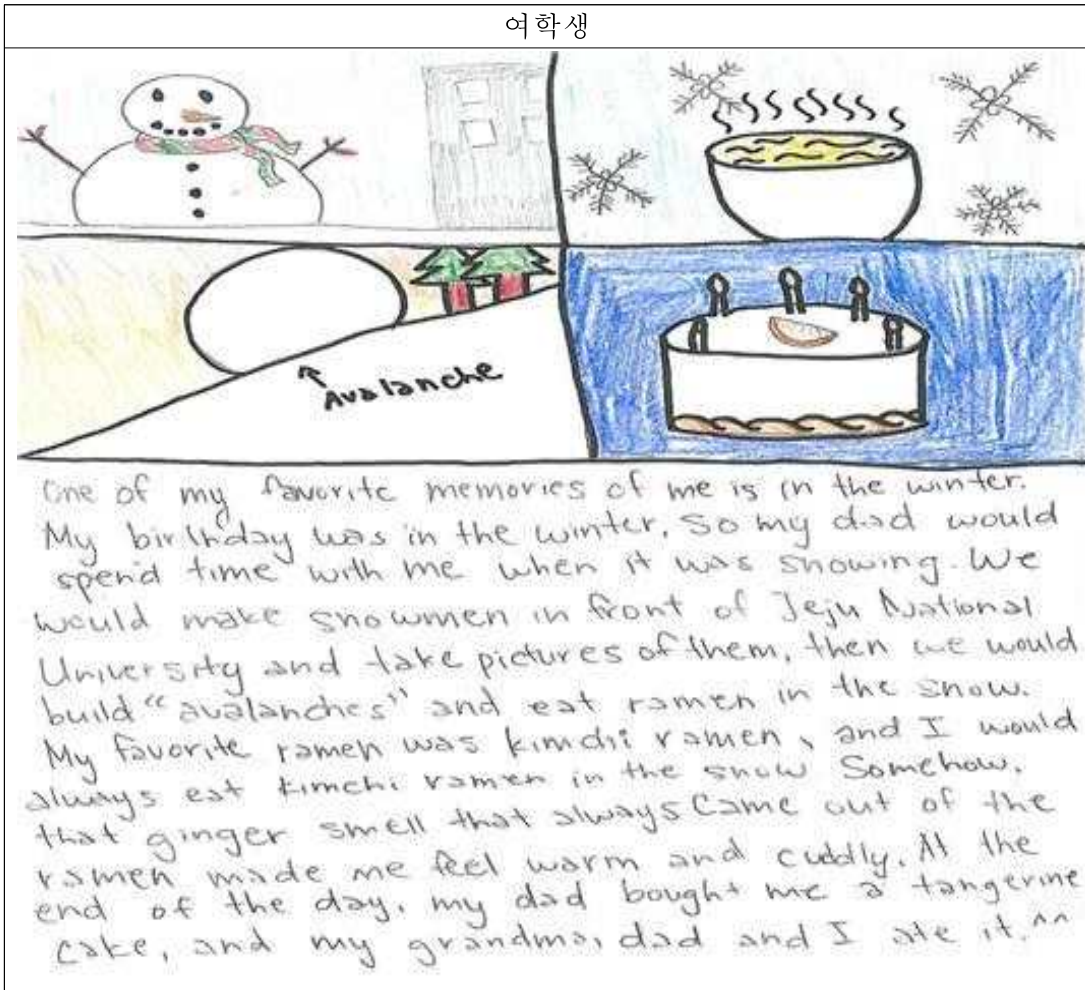 여학생
Avalanche
One of my favorite memories of me is in the winter.
My birthday was in the winter, so my dad would
spend time with me when it was snowing. We
would make snowmen in front of Jeju National
University and take pictures of them, then we would
build "avalanches" and eat ramen in the snow.
My favorite ramen was kimchi ramen, and I would
always eat kimchi ramen in the snow Somehow,
that ginger smell that always came out of the
ramen made me feel warm and cuddly. At the
end of the day, my dad bought me a tangerine
cake, and my grandma, dad and I ate it.^^